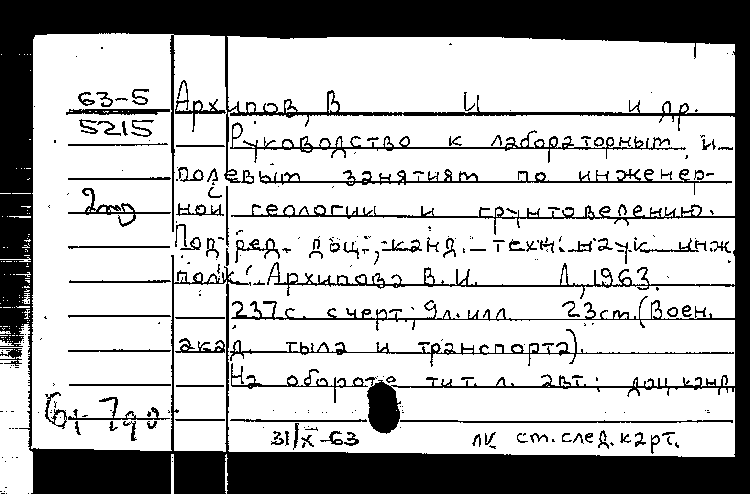 63-5 Архипов, В И и др.
5215 Руководство к лабораторным и
полевым занятиям по инженер-
ной геологии и грунтоведению.
Под ред. доц., канд. техн. наук инж.
полк. Архипова В. И. Л., 1963.
237 с. с черт.; 9 л. илл. 23 cm. (Воен.
акад. тыла и транспорта).
На обороте тит. л. авт.: доц. канд.
31/X-63 см. след. карт.